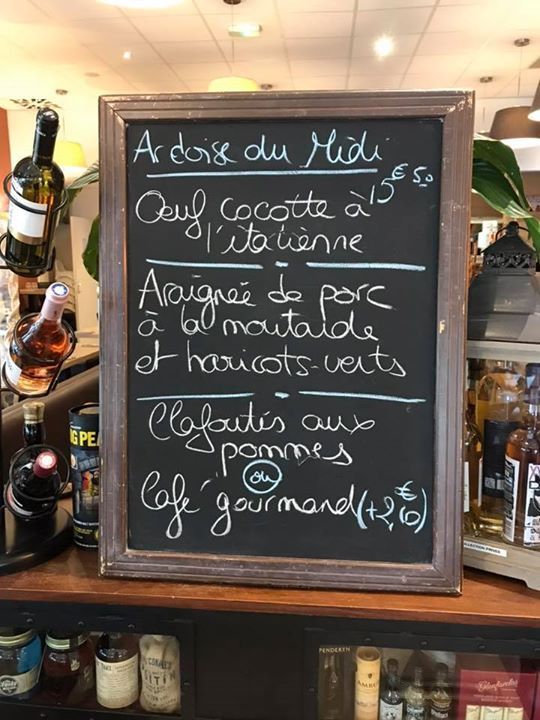 Ardoise du Midi
15€50
Œuf cocotte à
l'italienne
Araignée de porc
à la moutarde
et haricots-verts
Clafoutis aux
pommes
ou
Café gourmand (+2,€10)
G PEA
COLLECTION PRIVÉE
PENDERYN
Glenfarclas